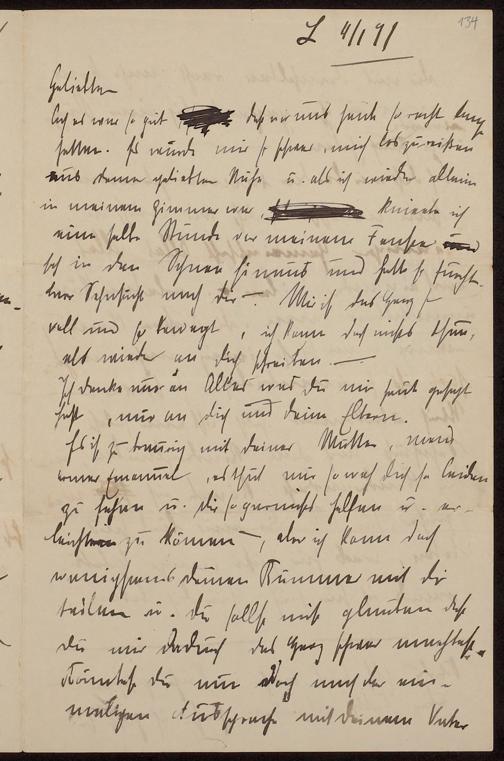 134
L 4/1 91
Geliebter
Ach es war so gut daß wir uns heute so recht lang
hatten. Es wurde mir so schwer, mich loszureißen
aus deiner geliebten Nähe u. als ich wieder allein
in meinem Zimmer war, kniete ich
eine halbe Stunde vor meinem Fenster
sah in den Schnee hinaus und hatte so furcht-
bare Sehnsucht nach dir –. Mir ist das Herz so
voll und so bewegt, ich kann doch nichts thun,
als wieder an dich schreiben. —
Ich denke nur an Alles was du mir heut gesagt
hast, nur an dich und deine Eltern.
Es ist zu traurig mit deiner Mutter, mein
armer Emanuel, es thut mir so weh dich so leiden
zu sehen u. dir so garnichts helfen u. er-
leichtern zu können –, aber ich kann doch
wenigstens deinen Kummer mit dir
teilen u. du sollst nicht glauben daß
du mir dadurch das Herz schwer machtest.
Könntest du nur doch nach der ein-
maligen Aussprache mit deinem Vater